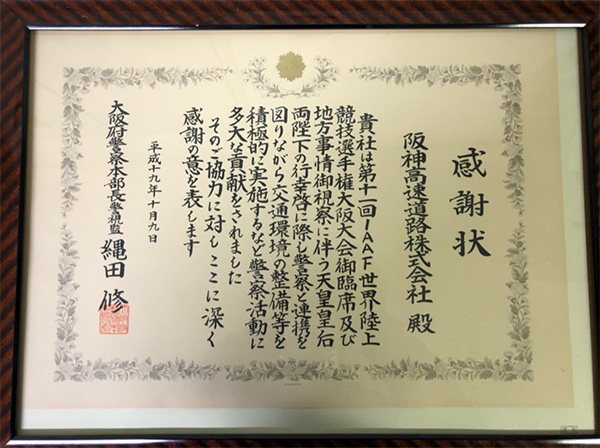 感謝状
阪神高速道路株式会社 殿
貴社は第十一回IAAF世界陸上
競技選手権大阪大会御臨席及び
地方事情御視察に伴う天皇皇后
両陛下の行幸啓に際し警察と連携を
図りながら交通環境の整備等を
積極的に実施するなど警察活動に
多大な貢献をされました
そのご協力に対しここに深く
感謝の意を表します
平成十九年十月九日
大阪府警察本部長警視監 縄田 修